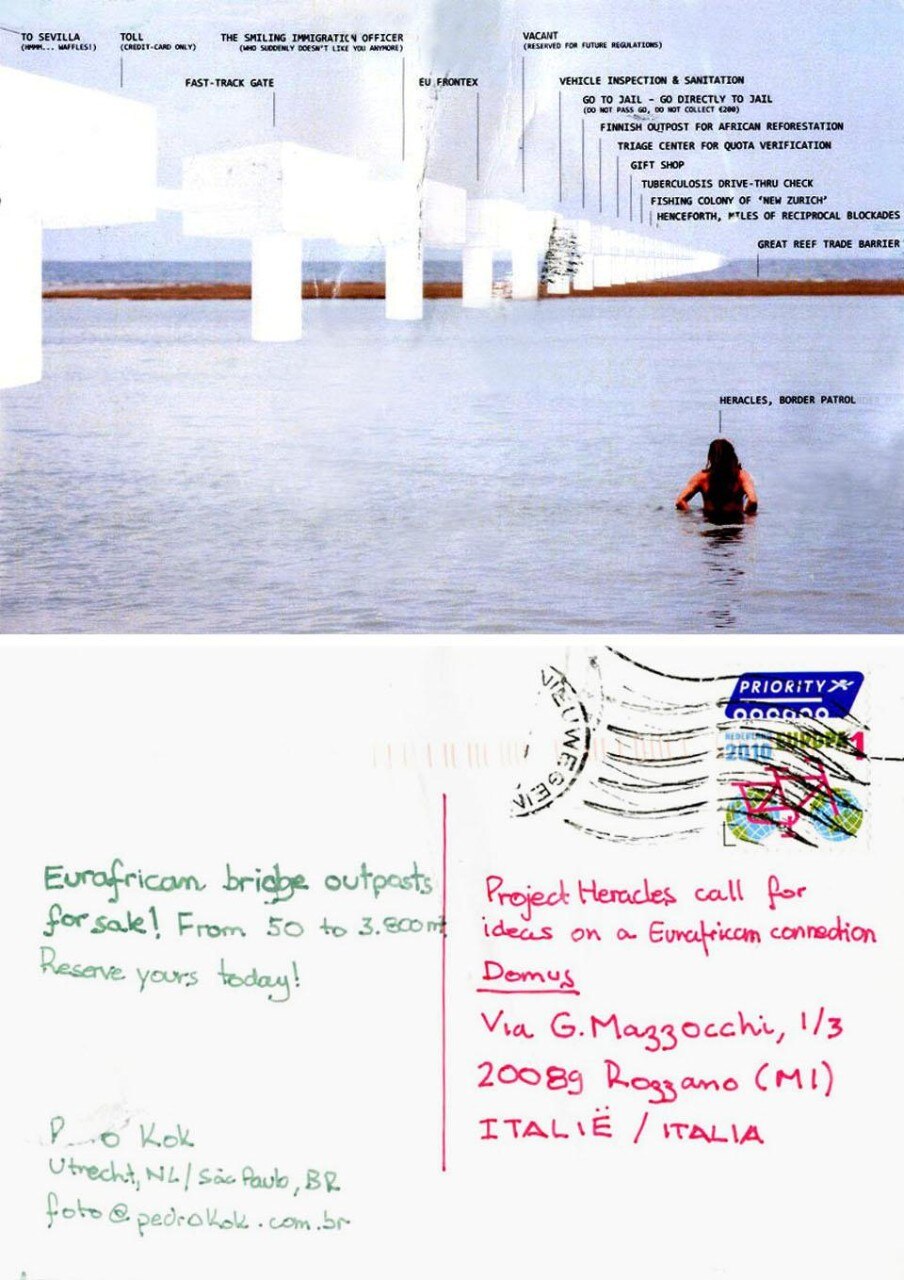 TO SEVILLA
(HMMM... WAFFLES!)
TOLL
(CREDIT-CARD ONLY)
THE SMILING IMMIGRATION OFFICER
(WHO SUDDENLY DOESN'T LIKE YOU ANYMORE)
VACANT
(RESERVED FOR FUTURE REGULATIONS)
FAST-TRACK GATE
EU FRONTEX
VEHICLE INSPECTION & SANITATION
GO TO JAIL - GO DIRECTLY TO JAIL
(DO NOT PASS GO, DO NOT COLLECT €200)
FINNISH OUTPOST FOR AFRICAN REFORESTATION
TRIAGE CENTER FOR QUOTA VERIFICATION
GIFT SHOP
TUBERCULOSIS DRIVE-THRU CHECK
FISHING COLONY OF 'NEW ZURICH'
HENCEFORTH, MILES OF RECIPROCAL BLOCKADES
GREAT REEF TRADE BARRIER
HERACLES, BORDER PATROL
NIEUWEGEIN
PRIORITY
NEDERLAND
2010 EUROPA 1
Eurafrican bridge outposts
for sale! From 50 to 3.800 m²
Reserve yours today!
Kok
Utrecht, NL/São Paulo, BR
foto@pedrokok.com.br
Project Heracles call for
ideas on a Eurafrican connection
Domus
Via G. Mazzocchi, 1/3
20089 Rozzano (MI)
ITALIË / ITALIA